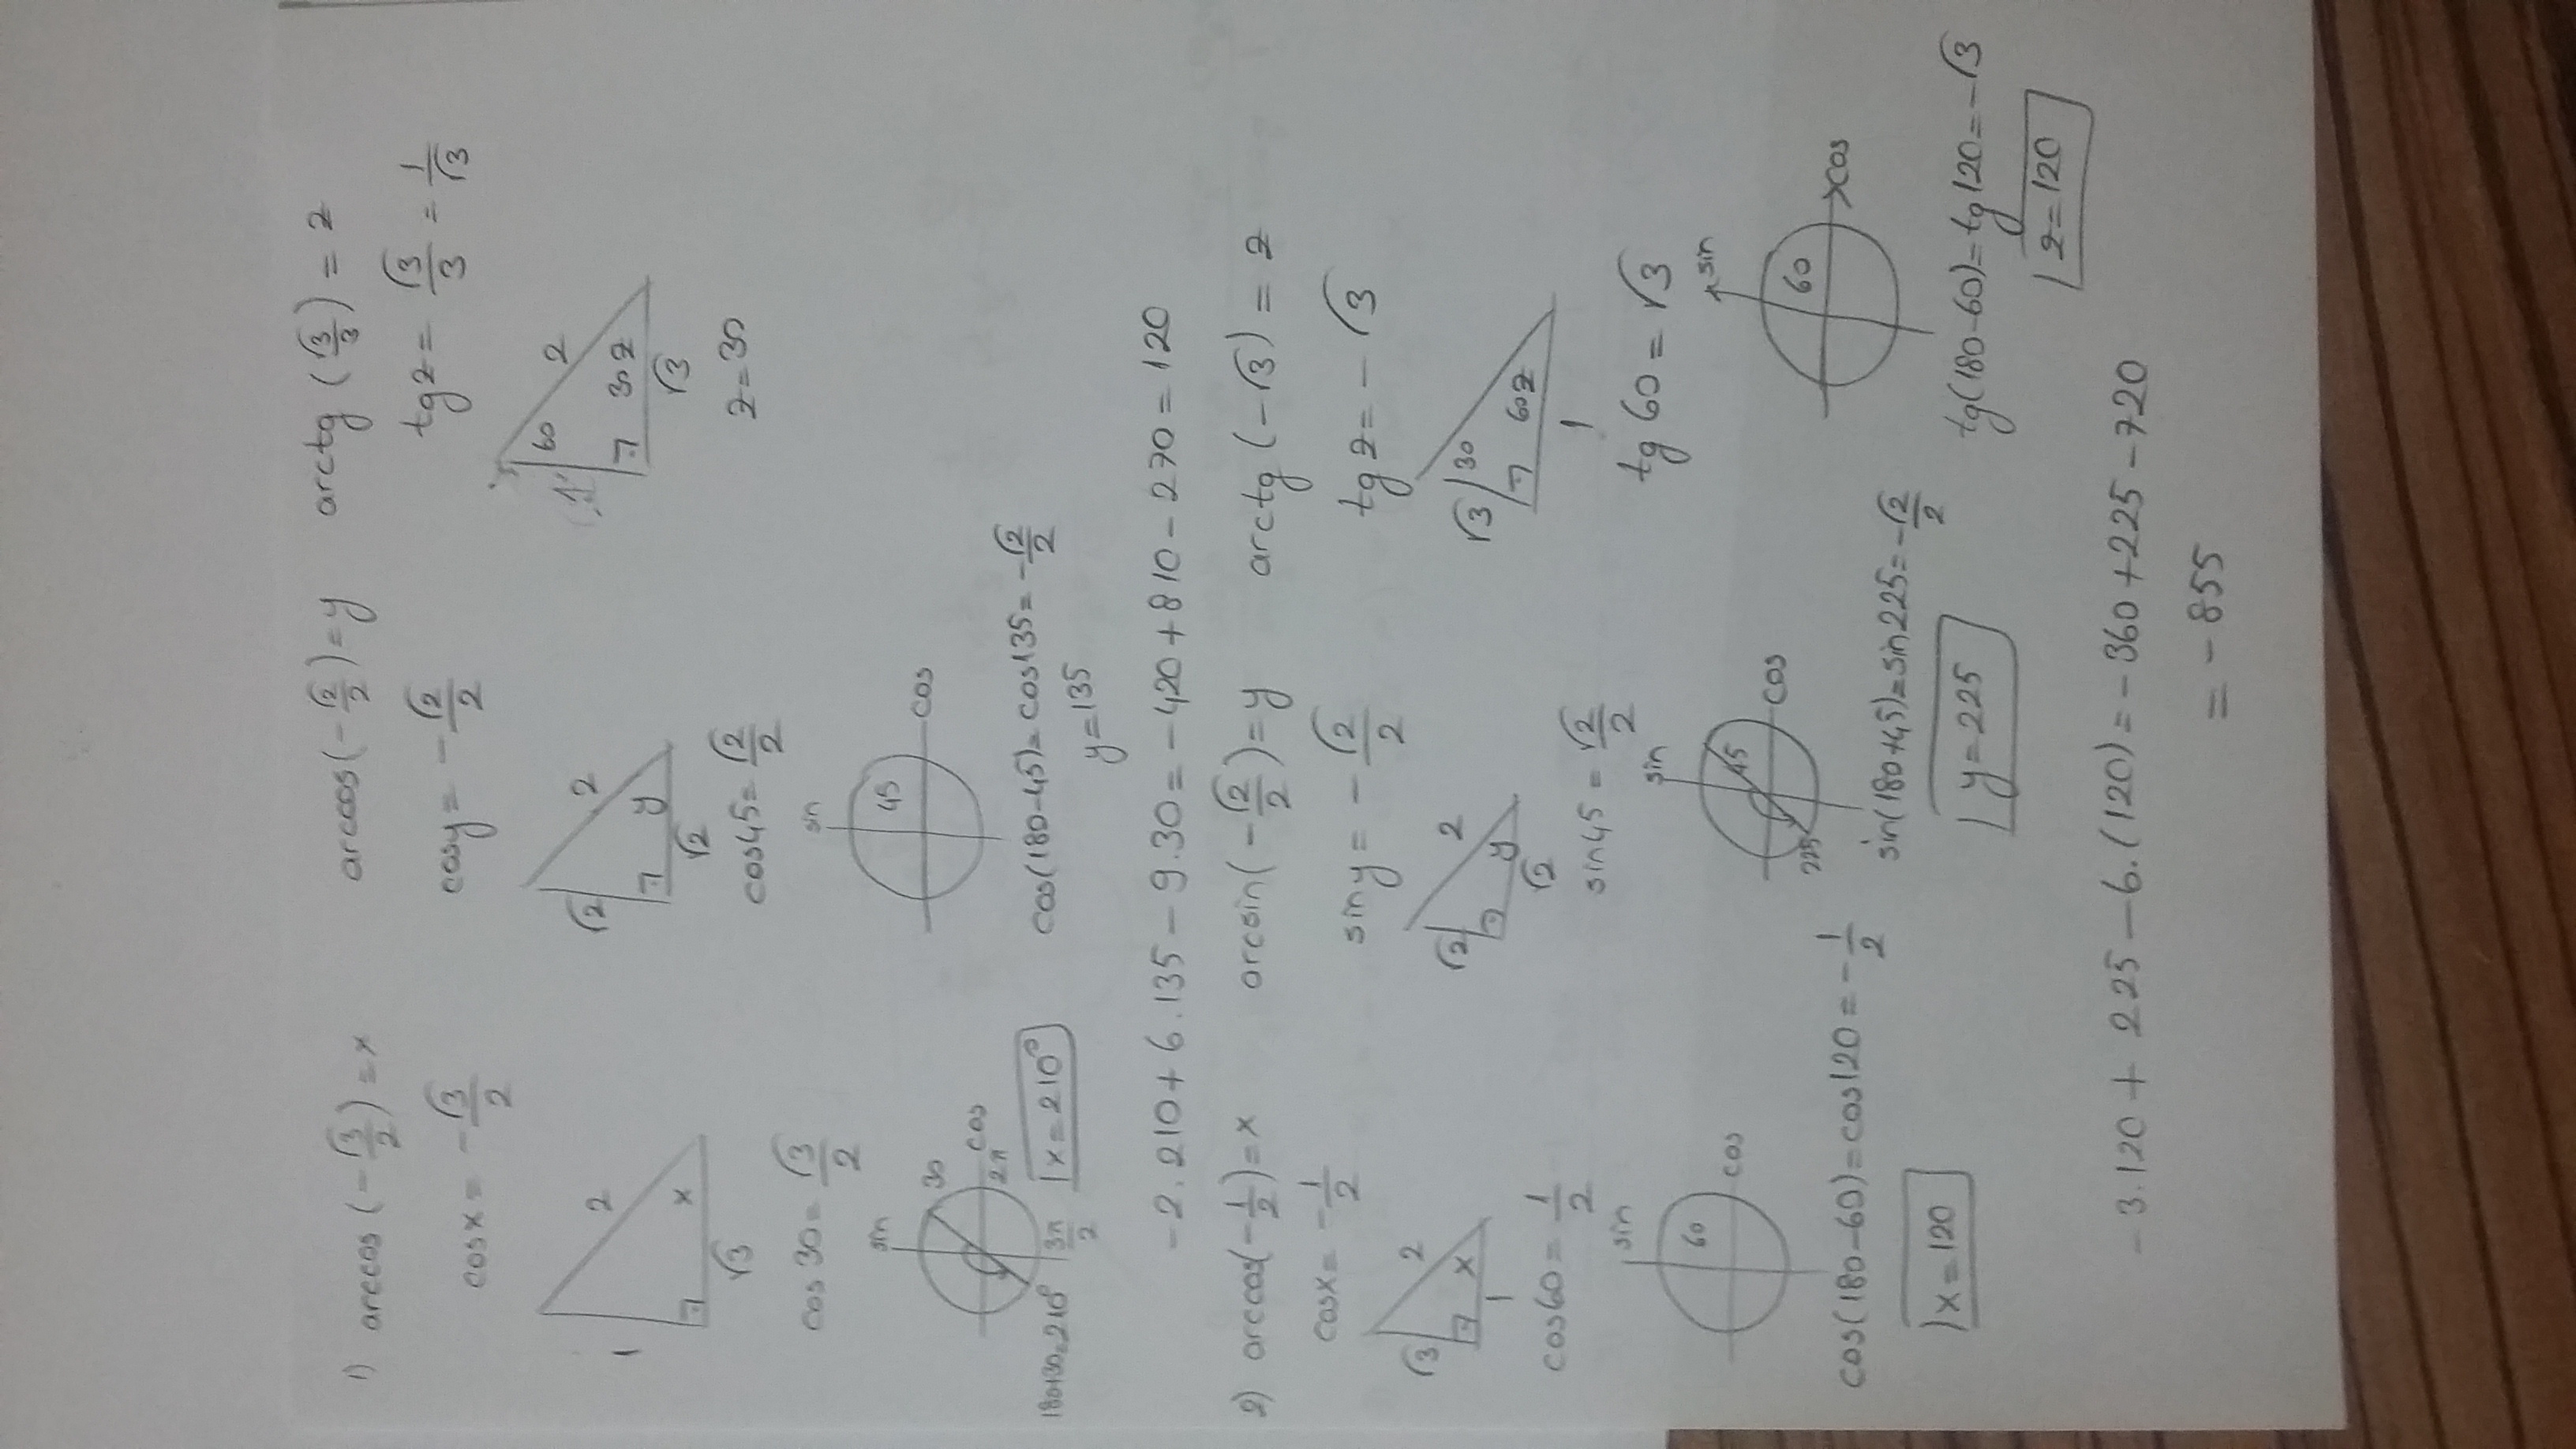 1) arccos(-√3/2)=x   arccos(-√2/2)=y   arctg(√3/3)=z
cosx=-√3/2   cosy=-√2/2   tgz=√3/3=1/√3
1 2 x √3   √2 2 y √2   1 2 60 30 z √3
cos30=√3/2   cos45=√2/2   z=30
sin 30 cos 2π 3π/2   sin 45 cos
180+30=210°   x=210°   cos(180-45)=cos135=-√2/2
y=135
-2.210+6.135-9.30=-420+810-270=120
2) arccos(-1/2)=x   arcsin(-√2/2)=y   arctg(-√3)=z
cosx=-1/2   siny=-√2/2   tgz=-√3
√3 2 x 1   √2 2 y √2   √3 30 60 z 1
cos60=1/2   sin45=√2/2   tg60=√3
sin 60 cos   sin 45 cos 225   sin 60 cos
cos(180-60)=cos120=-1/2   sin(180+45)=sin225=-√2/2   tg(180-60)=tg120=-√3
x=120   y=225   z=120
-3.120+225-6.(120)=-360+225-720
=-855